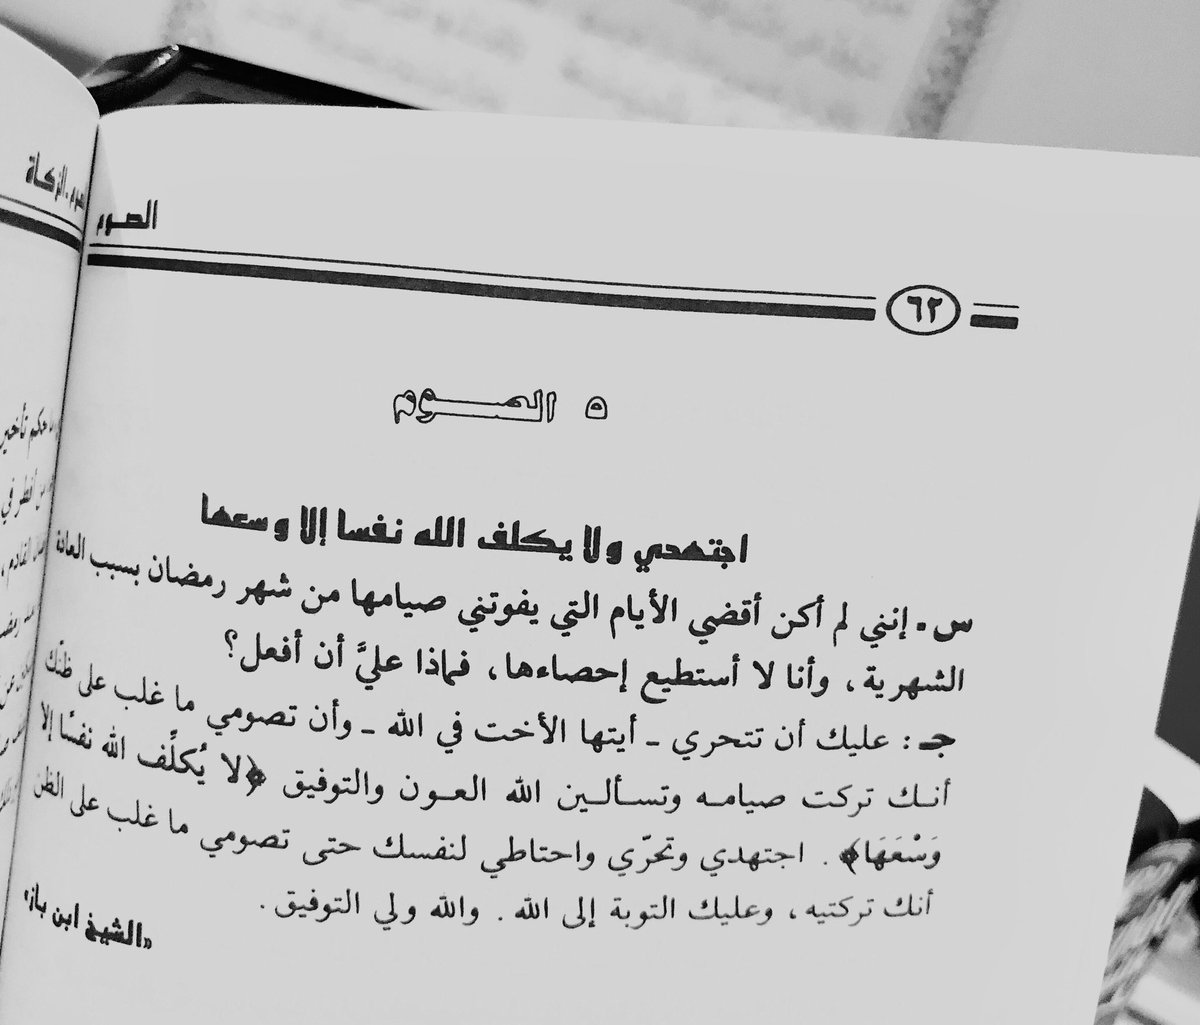 الصوم
٦٢
٥ الصوم
اجتهدي ولا يكلف الله نفسا إلا وسعها
س ـ إنني لم أكن أقضي الأيام التي يفوتني صيامها من شهر رمضان بسبب العادة
الشهرية، وأنا لا أستطيع إحصاءها، فماذا عليَّ أن أفعل؟
جـ : عليك أن تتحري ـ أيتها الأخت في الله ـ وأن تصومي ما غلب على ظنّك
أنـك تركت صيامـه وتسـألـين الله العـون والتوفيق ﴿لا يُكلِّف الله نفسًا إلا
وَسْعَهَا﴾ . اجتهدي وتحرّي واحتاطي لنفسك حتى تصومي ما غلب على الظن
أنك تركتيه، وعليك التوبة إلى الله . والله ولي التوفيق .
«الشيخ ابن باز»
الزكاة
حكم تأخير
أفطر في
القادم،